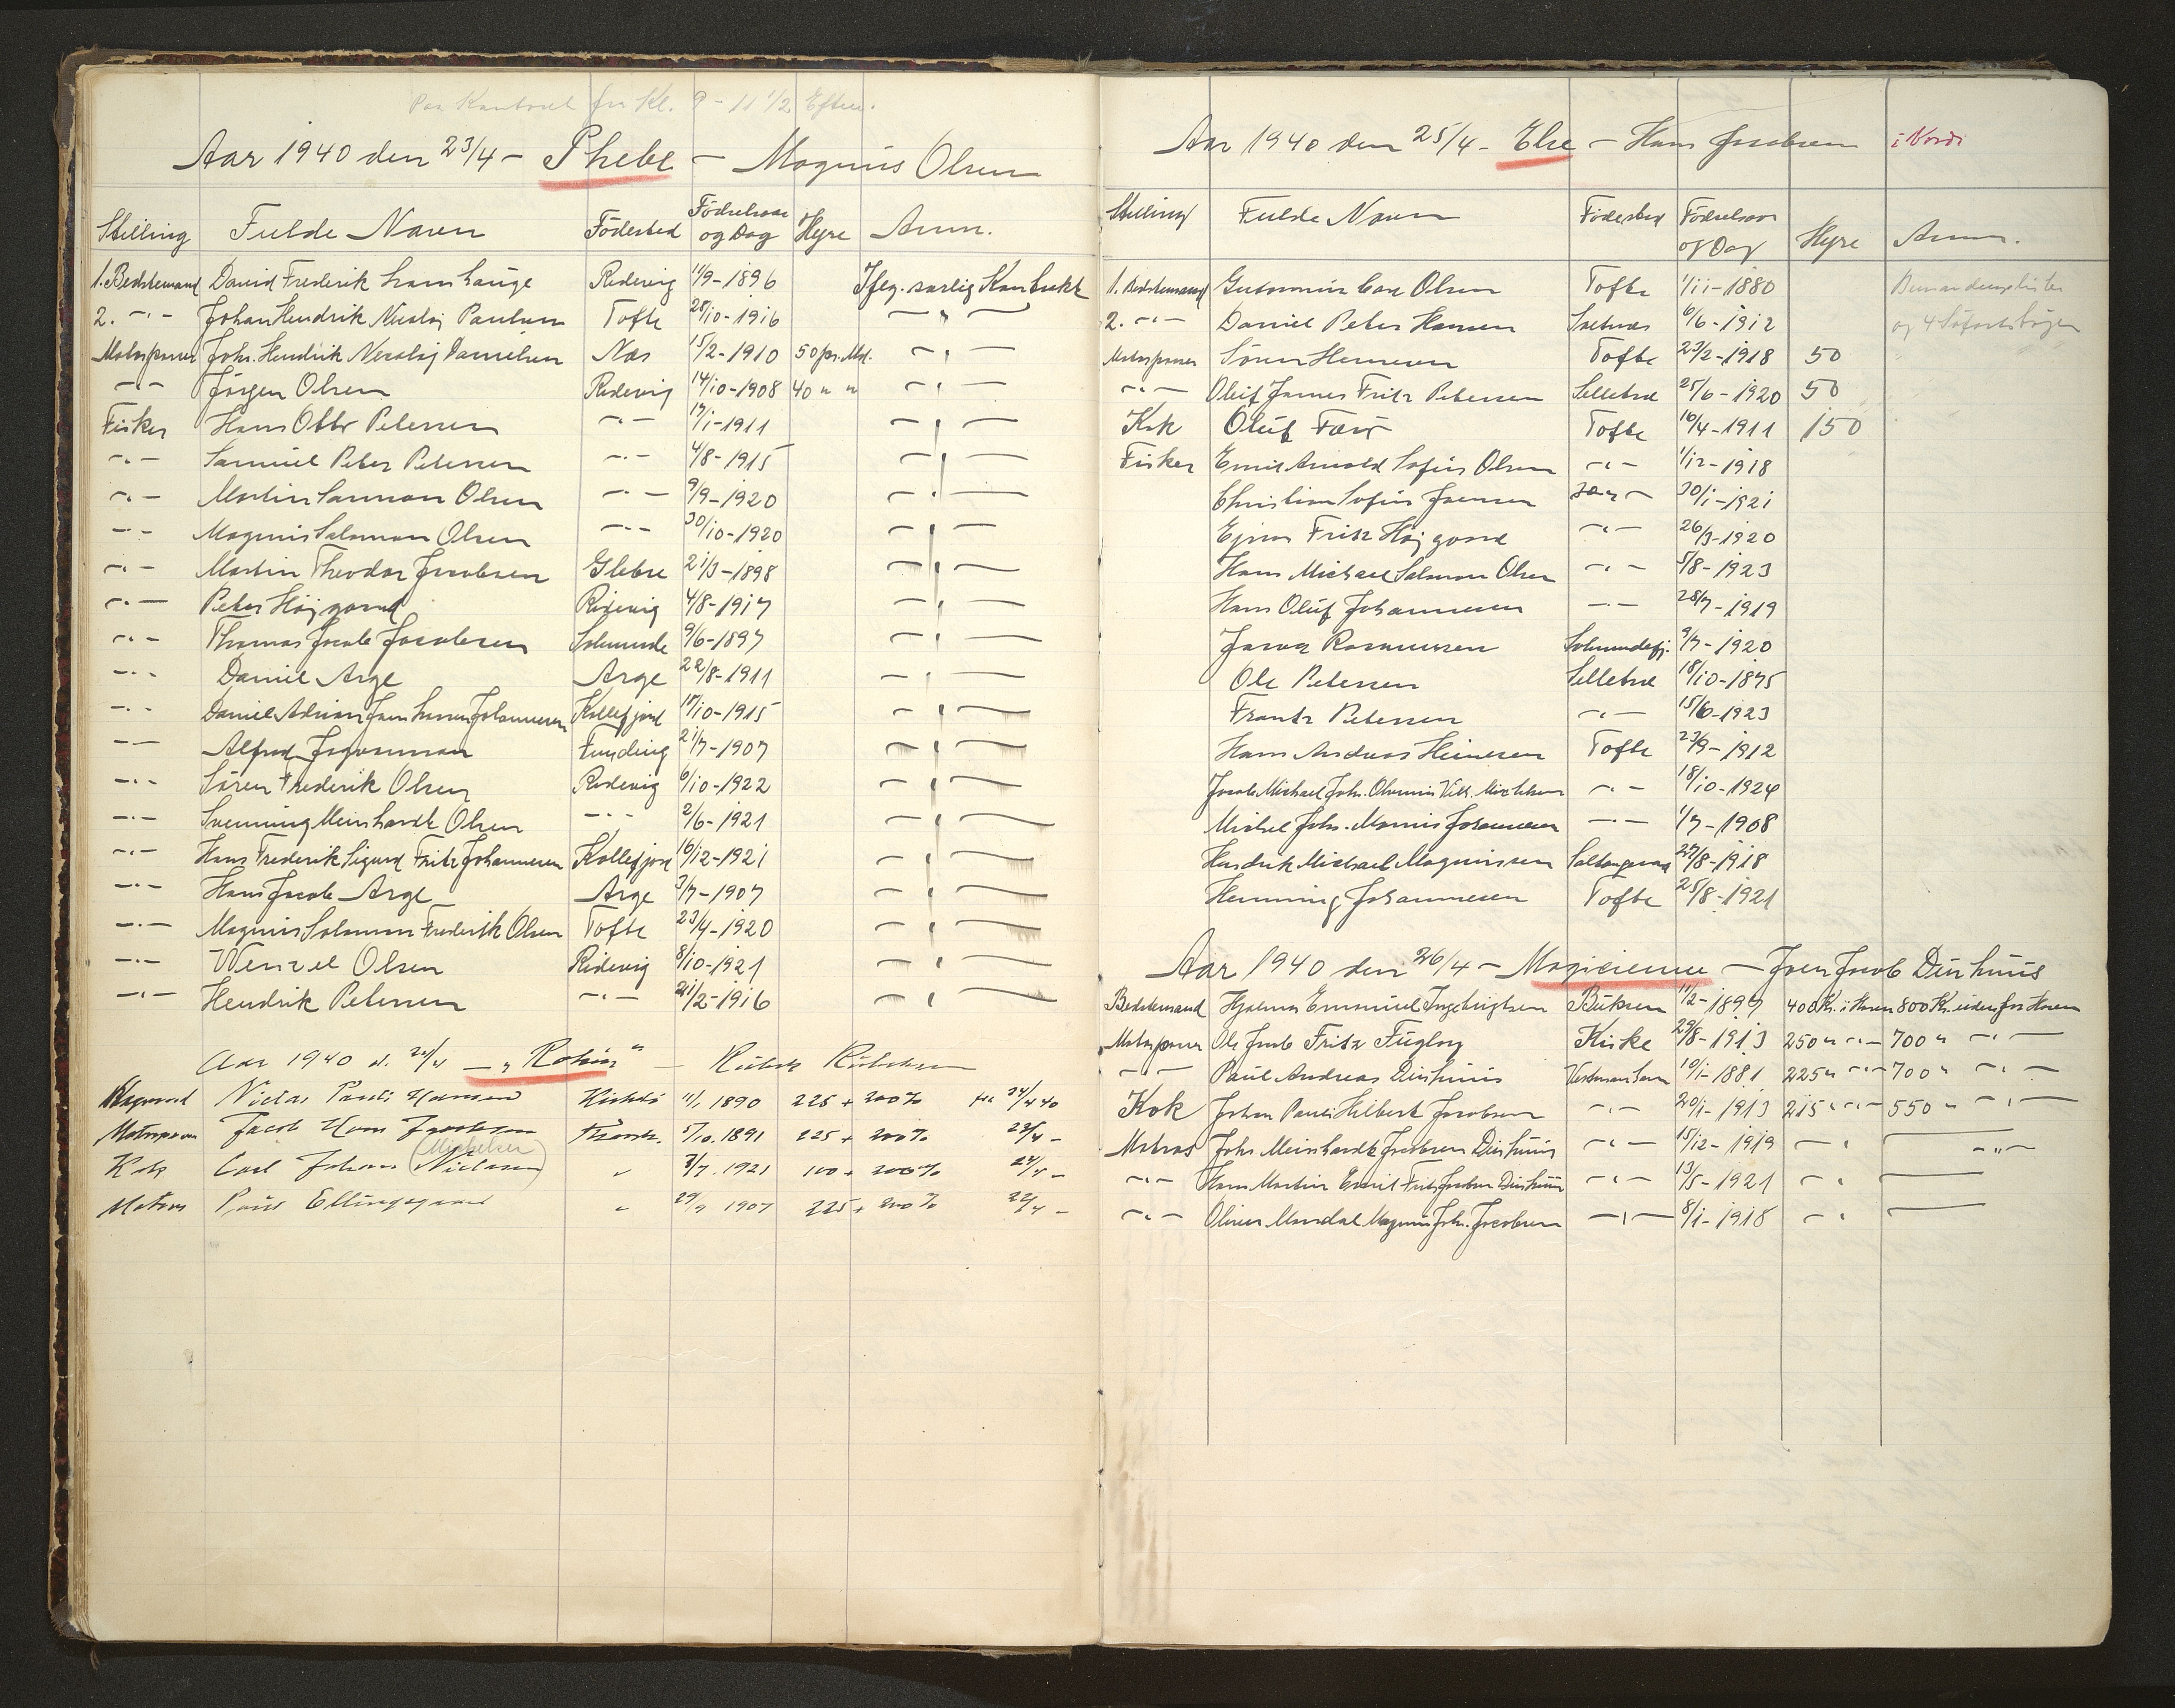 Paa Kontoret fra Kl. 9 - 11 1/2 Efterm.
Aar 1940 den 23/4 - Phebe - Magnus Olsen
Stilling Fulde Navn Födested Födselsaar og Dag Hyre Anm.
1. Bedstemand David Frederik Hauge Ridevig 11/9-1896 Iflg. særlig Kontrakt
2. -"- Johan Hendrik Nicolaj Paulsen Tofte 28/10-1916 -"-
Motorpasser Johs. Hendrik Nicolaj Danielsen Næs 15/2-1910 50 pr. Md. -"-
-"- Jörgen Olsen Ridevig 14/10-1908 40 " " -"-
Fisker Hans Otto Petersen -"- 17/1-1911 -"-
-"- Samuel Peter Petersen -"- 4/8-1915 -"-
-"- Martin Samson Olsen -"- 9/9-1920 -"-
-"- Magnus Salomon Olsen -"- 30/10-1920 -"-
-"- Martin Theodor Jacobsen Glibre 21/3-1898 -"-
-"- Peter Höjgaard Ridevig 4/8-1917 -"-
-"- Thomas Jacob Jacobsen Solmunde 9/6-1897 -"-
-"- Daniel Arge Arge 22/8-1911 -"-
-"- Daniel Adrian Joen Johannesen Kollefjord 17/10-1915 -"-
-"- Alfred Jogvanman Funding 21/7-1907 -"-
-"- Sören Frederik Olsen Ridevig 6/10-1922 -"-
-"- Svenning Meinhardt Olsen -"- 2/6-1921 -"-
-"- Hans Frederik Sigurd Fritz Johannesen Kollefjord 16/12-1921 -"-
-"- Hans Jacob Arge Arge 3/7-1907 -"-
-"- Magnus Salomon Frederik Olsen Tofte 23/4-1920 -"-
-"- Wenzel Olsen Ridevig 8/10-1921 -"-
-"- Hendrik Petersen -"- 21/2-1916 -"-
Aar 1940 d. 24/4 - "Robin" - Rubek Rubeksen
Niclas Pauli Hansen 11/1 1890 225 + 200% fra 24/4 40
Motorpasser Jacob Hans Jacobsen 5/10. 1891 225 + 200% 22/4 -
Kok Carl Johan (Nielsen) Michelsen " 3/7. 1921 100 + 200% 24/4 -
Matros Poul Ellingsgaard " 29/9 1907 225 + 200% 22/4 -
Aar 1940 den 25/4 - Else - Hans Jacobsen i Nords
Stilling Fulde Navn Födested Födselsaar og Dag Hyre Anm.
1. Bedstemand Carl Olsen Tofte 1/11-1880 Bemandingslister
2. -"- Daniel Peter Hansen Saltnæs 6/6-1912 og 4 Söfartsböger
Motorpasser Sören Heinesen Tofte 23/2-1918 50
-"- Oluf James Fritz Petersen Selletræ 25/6-1920 50
Kok Oluf Færö Tofte 16/4-1911 150
Fisker Emil Arnold Sofus Olsen -"- 1/12-1918
Christian Sofus Joensen 30/1-1921
Ejnar Fritz Höjgaard -"- 26/3-1920
Hans Michael Salomon Olsen -"- 5/8-1923
Hans Oluf Johannesen -"- 28/7-1919
Rasmussen Solmundefj. 9/7-1920
Ole Petersen Selletræ 18/10-1875
Frantz Petersen -"- 15/6-1923
Hans Andreas Heinesen Tofte 23/9-1912
Jacob Michael Joh. Vilh. Michelsen -"- 18/10-1924
Michel Joh. Johannesen -"- 1/7-1908
Hendrik Michael Magnussen Saltangaraa 27/8-1918
Henning Johannesen Tofte 25/8-1921
Aar 1940 den 26/4 - Magicienne - Joen Jacob Dinhuus
Bedstemand Hjalmar Emanuel Ingebrigtsen 11/2-1897 400 Kr. i Havn 800 Kr. udenfor Havn
Motorpasser Ole Jacob Fritz Fuglöy Kirke 29/8-1913 250 " -"- 700 " -"-
-"- Paul Andreas Dinhuus Vestmanhavn 10/1-1881 225 " -"- 700 " -"-
Kok Johan Pauli Hilbert Jacobsen -"- 20/1-1913 215 " -"- 550 " -"-
Matros Johs. Meinhardt Jacobsen Dinhuus -"- 15/12-1919 -"- -"-
-"- Hans Martin Emil Fritz Jacobsen Dinhuus -"- 13/5-1921 -"-
-"- Oliver Mandal Magnus Joh. Jacobsen -"- 8/1-1918 -"-